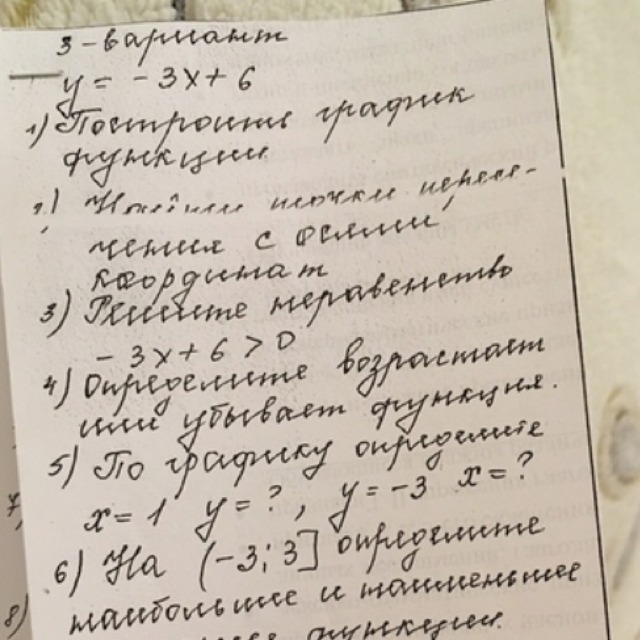 3-вариант
y = -3x+6
1) Построить график
функции
2) Найти точки пересе-
чения с осями
координат
3) Решите неравенство
-3x+6>0
4) Определите возрастает
или убывает функция.
5) По графику определите
x=1 y=?, y=-3 x=?
6) На (-3;3] определите
наибольшее и наименьшее
функции.
7,
8)